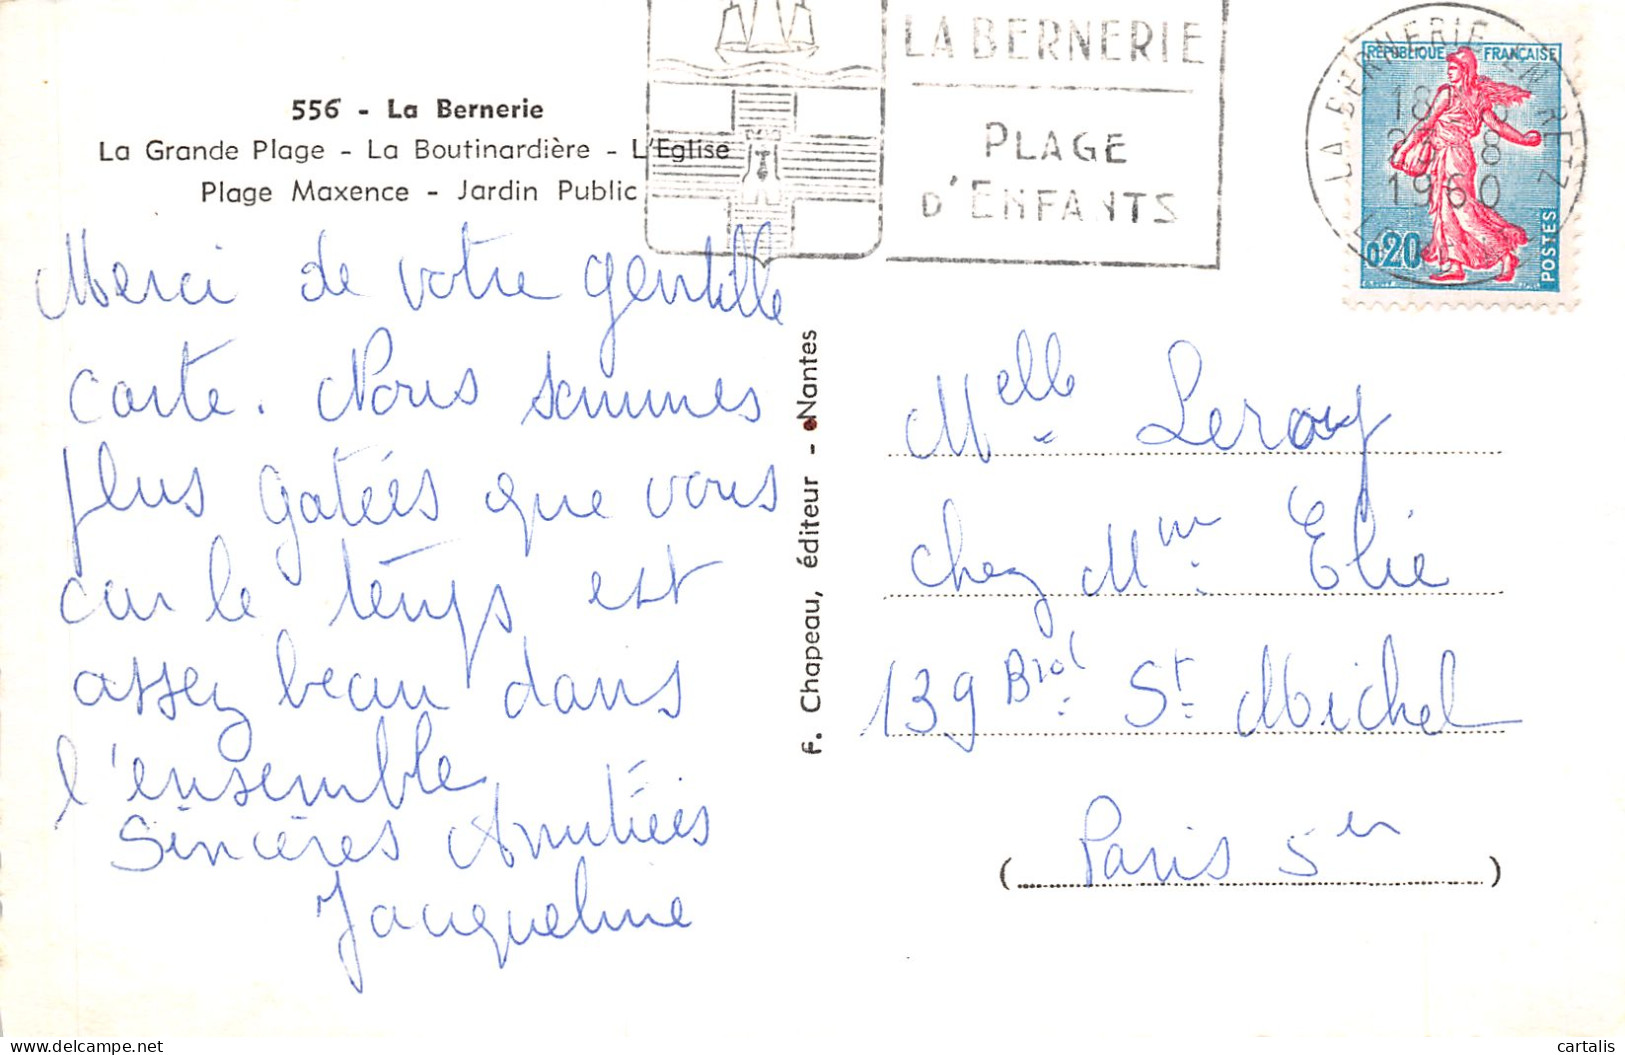 556 - La Bernerie
La Grande Plage - La Boutinardière - L'Eglise
Plage Maxence - Jardin Public
LA BERNERIE
PLAGE
D'ENFANTS
LA BERNERIE EN RETZ
1960
RÉPUBLIQUE FRANÇAISE
0,20
POSTES
Merci de votre gentille
carte. Nous sommes
plus gatées que vous
car le temps est
assez beau dans
l'ensemble
Sincères Amitiés
Jacqueline
F. Chapeau, éditeur - Nantes
Melle Leroy
chez Mme Elie
139 Brd St Michel
(Paris 5em)
cartalis